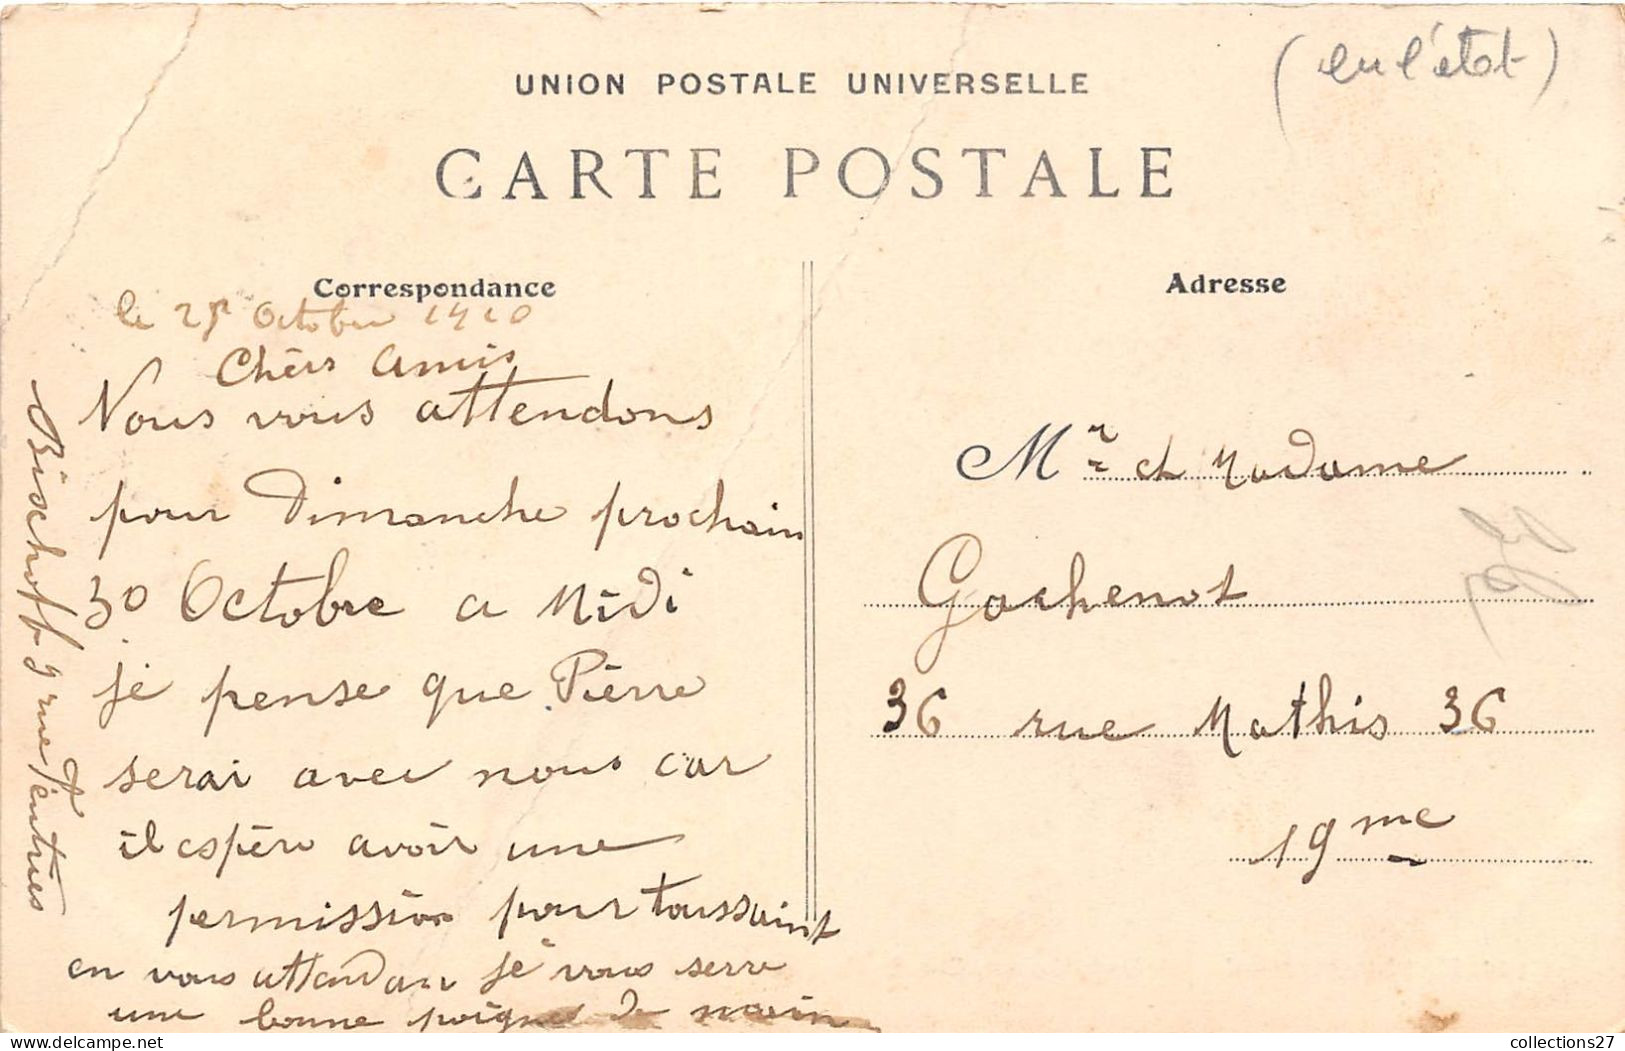 (en l'état)
UNION POSTALE UNIVERSELLE
CARTE POSTALE
Correspondance
Adresse
le 25 Octobre 1910
Chèrs amis
Nous vous attendons
pour Dimanche prochain
30 Octobre a Midi
je pense que Pièrre
serai avec nous car
il espère avoir une
permission pour toussaint
en vous attendan je vous serre
une bonne poigne de main
Bischoff 9 rue
Mr et Madame
Gachenot
36 rue Mathis 36
19me
collections27